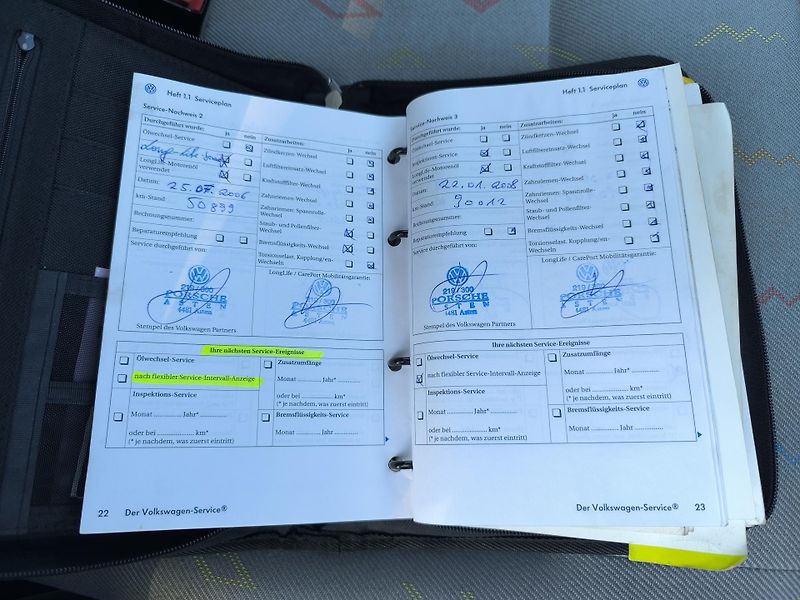 Heft 1.1 Serviceplan
Service-Nachweis 2
Durchgeführt wurde: ja nein Zusatzarbeiten: ja nein
Ölwechsel-Service
Zündkerzen-Wechsel
Long Life
LongLife-Motorenöl verwendet
Luftfiltereinsatz-Wechsel
Kraftstofffilter-Wechsel
Datum: 25.07.2006
Zahnriemen-Wechsel
km-Stand: 50899
Zahnriemen: Spannrolle-Wechsel
Rechnungsnummer:
Staub- und Pollenfilter-Wechsel
Reparaturempfehlung
Bremsflüssigkeits-Wechsel
Service durchgeführt von:
Torsionselast. Kupplung/en-Wechseln
LongLife / CarePort Mobilitätsgarantie:
219/300
PORSCHE
ASTEN
4481 Asten
219/300
PORSCHE
ASTEN
4481 Asten
Stempel des Volkswagen Partners
Ihre nächsten Service-Ereignisse
Ölwechsel-Service
nach flexibler Service-Intervall-Anzeige
Inspektions-Service
Monat Jahr*
oder bei km*
(* je nachdem, was zuerst eintritt)
Zusatzumfänge
Monat Jahr*
oder bei km*
(* je nachdem, was zuerst eintritt)
Bremsflüssigkeits-Service
Monat Jahr
22 Der Volkswagen-Service®
Heft 1.1 Serviceplan
Service-Nachweis 3
Durchgeführt wurde: ja nein Zusatzarbeiten: ja nein
Ölwechsel-Service
Zündkerzen-Wechsel
Inspektions-Service
Luftfiltereinsatz-Wechsel
LongLife-Motorenöl verwendet
Kraftstofffilter-Wechsel
Datum: 22.01.2008
Zahnriemen-Wechsel
km-Stand: 90012
Zahnriemen: Spannrolle-Wechsel
Rechnungsnummer:
Staub- und Pollenfilter-Wechsel
Reparaturempfehlung
Bremsflüssigkeits-Wechsel
Service durchgeführt von:
Torsionselast. Kupplung/en-Wechseln
LongLife / CarePort Mobilitätsgarantie:
219/300
PORSCHE
ASTEN
4481 Asten
219/300
PORSCHE
ASTEN
4481 Asten
Stempel des Volkswagen Partners
Ihre nächsten Service-Ereignisse
Ölwechsel-Service
nach flexibler Service-Intervall-Anzeige
Inspektions-Service
Monat Jahr*
oder bei km*
(* je nachdem, was zuerst eintritt)
Zusatzumfänge
Monat Jahr*
oder bei km*
(* je nachdem, was zuerst eintritt)
Bremsflüssigkeits-Service
Monat Jahr
Der Volkswagen-Service® 23